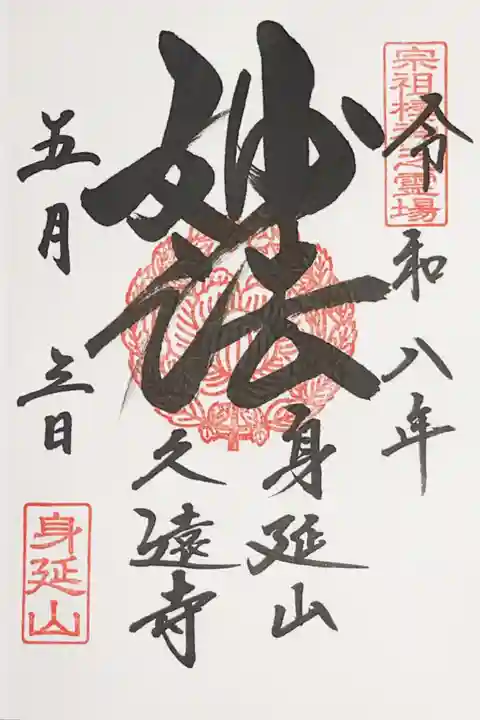 宗祖棲神之靈場
令和八年
身延山
妙法
久遠寺
五月 日
身延山